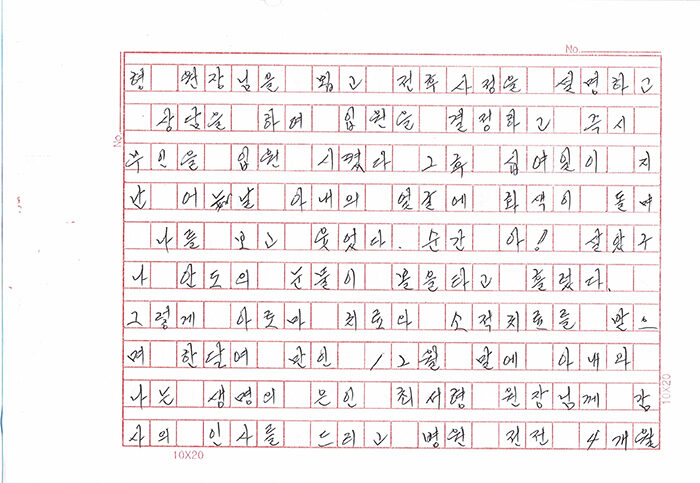 No.
형 원장님을 뵙고 전후사정을 설명하고
상담을 하여 입원을 결정하고 즉시
No.
부인을 입원 시켰다 그후 십여일이 지
난 어느날 아내의 얼굴에 화색이 돌며
나를 보고 웃었다. 순간 아! 살았구
나 안도의 눈물이 볼을타고 흘렀다.
그렇게 아로마 치료와 소적치료를 받으
며 한달여 만인 12월 말에 아내와
나는 생명의 은인 최서형 원장님께 감
사의 인사를 드리고 병원 전전 4개월
10X20
10X20